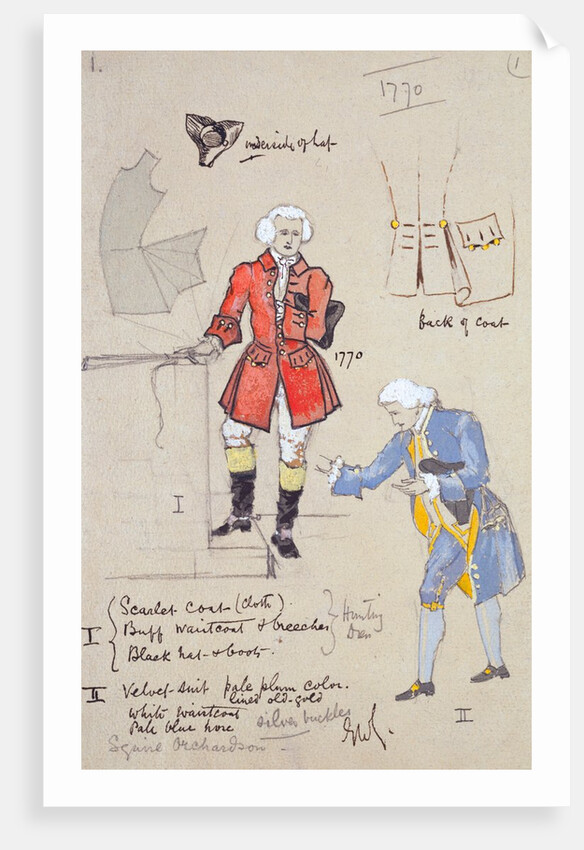 1.
1
1770
underside of hat
back of coat
1770
I
I
Scarlet coat (cloth).
Buff waistcoat & breeches
Black hat & boots.
Hunting
Dress
II
Velvet suit pale plum color.
lined old-gold
White waistcoat
Pale blue hose
silver buckles
Squire Orchardson
II